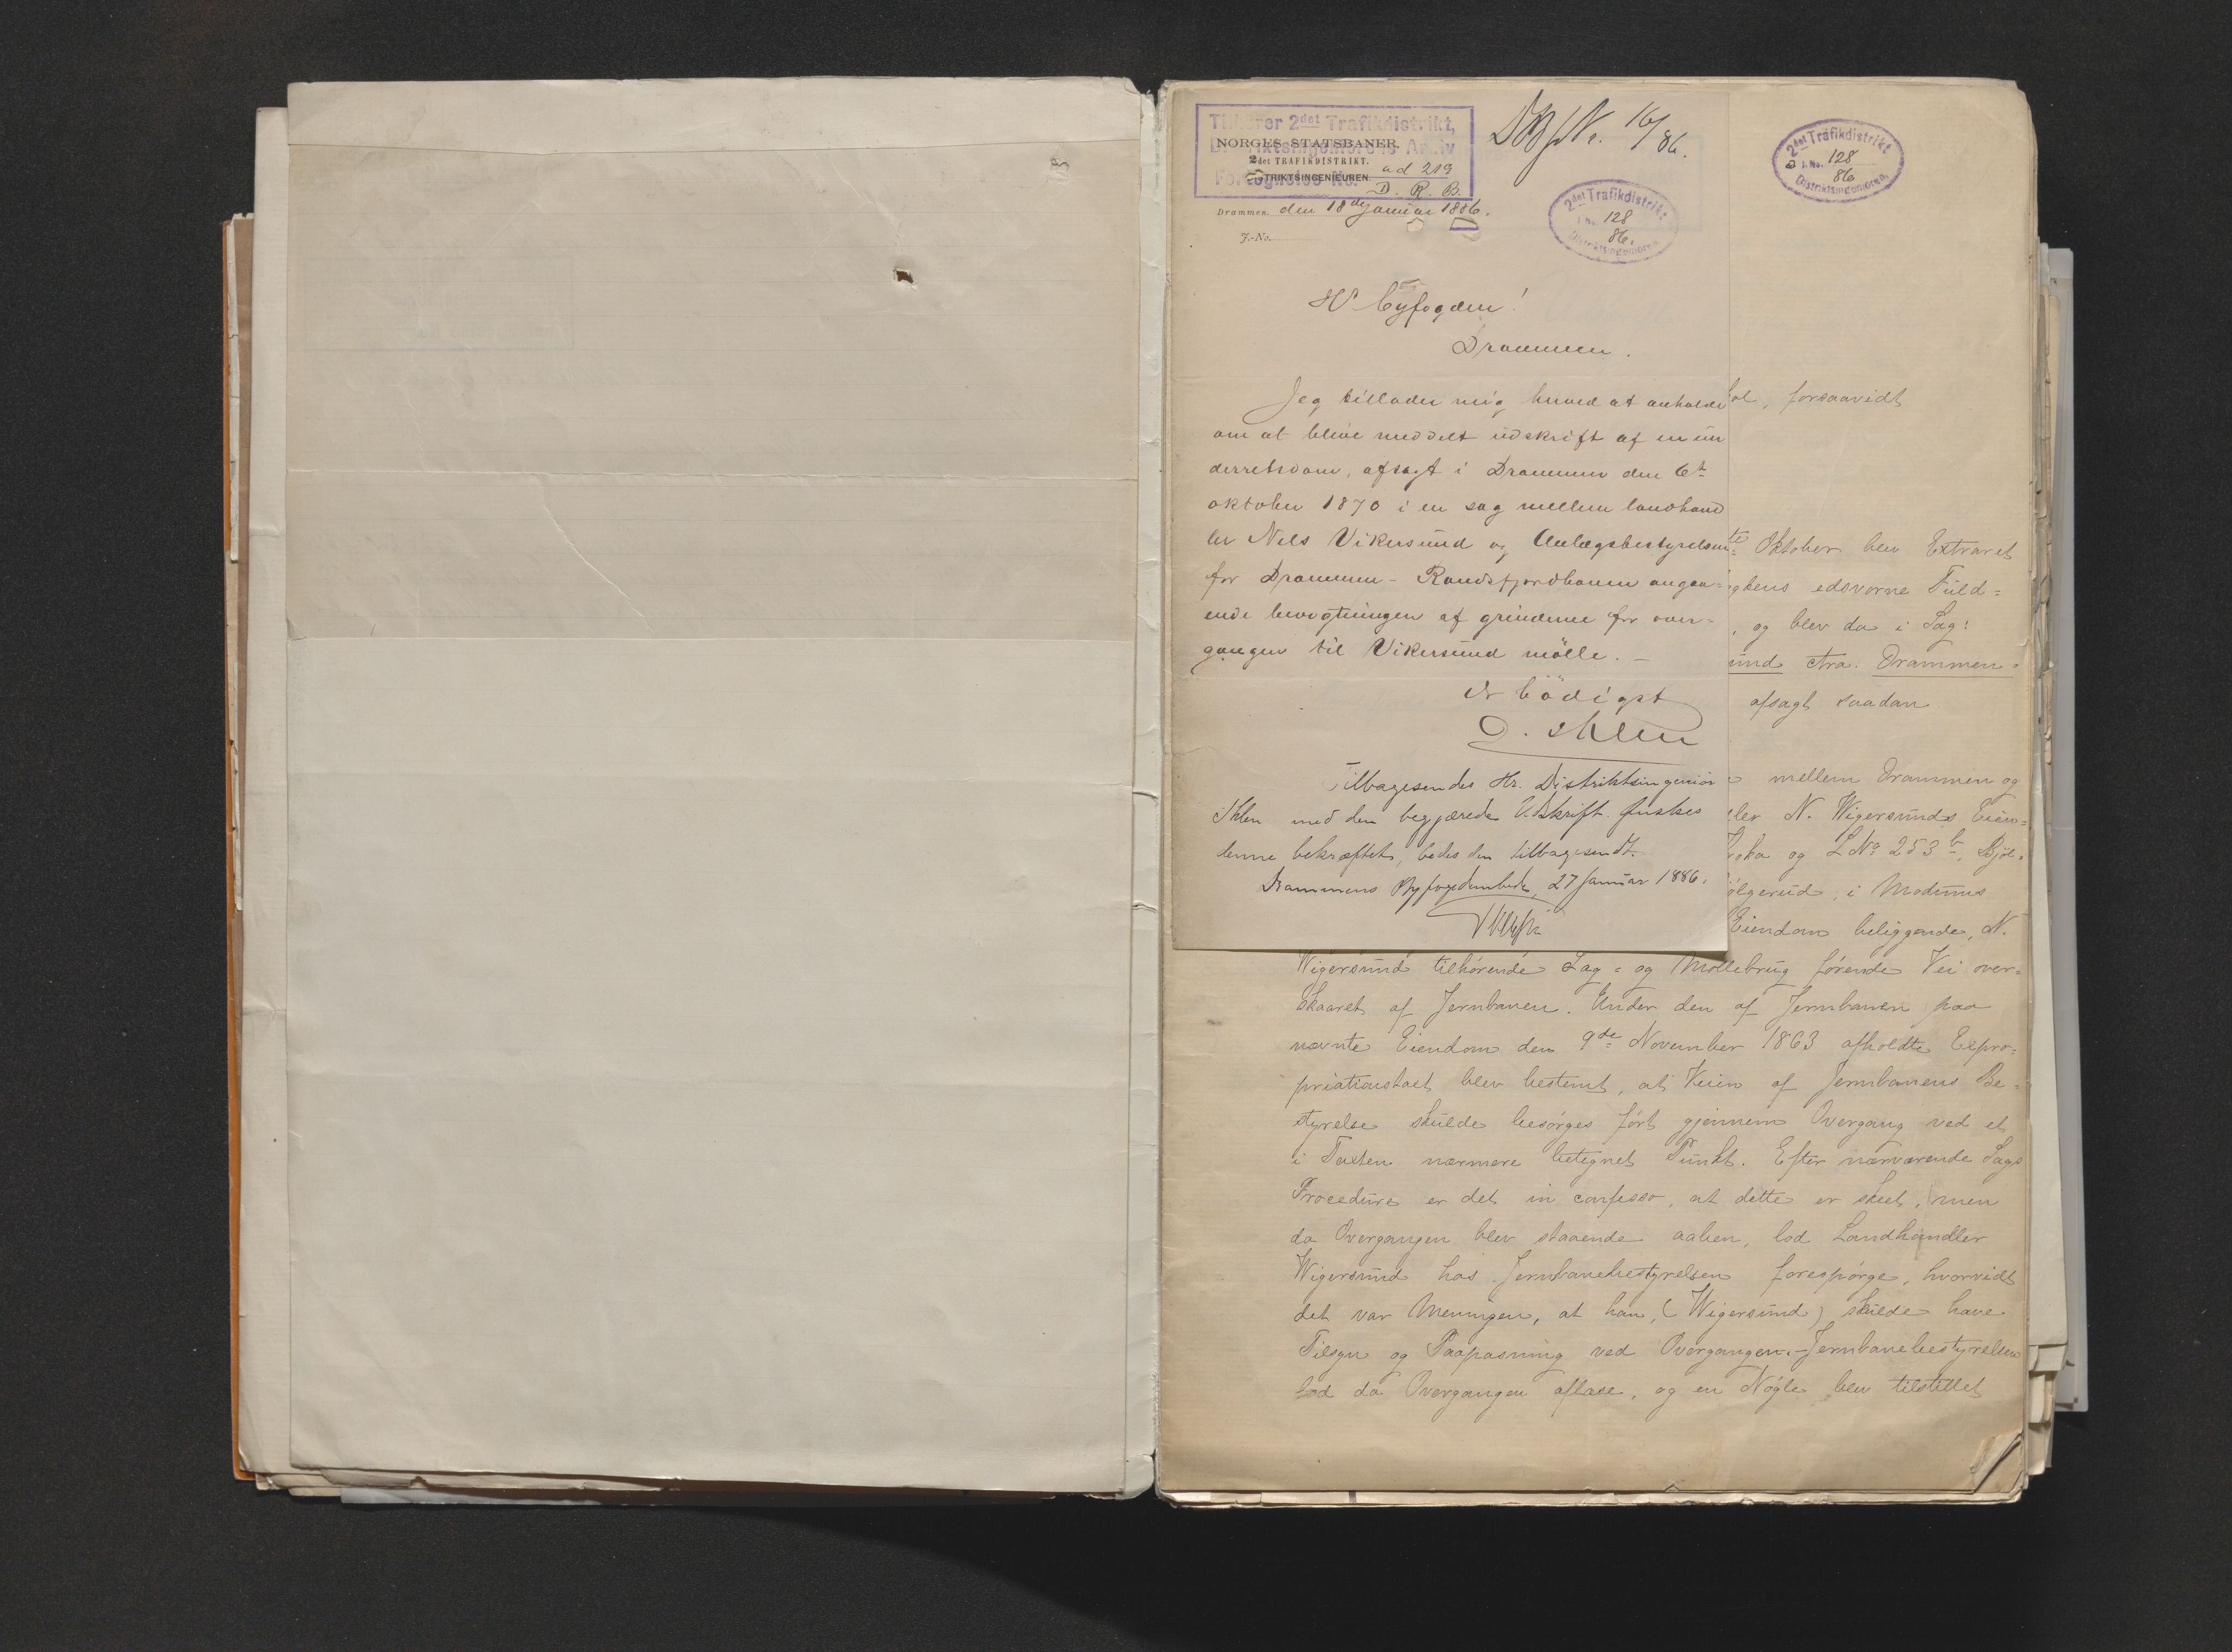 Tilhører 2det Trafikdistrikt,
Distriktsingeniørens Arkiv
Fortegnelse No. ad 219
D. R. B.
NORGES STATSBANER.
2det TRAFIKDISTRIKT.
DISTRIKTSINGENIEUREN
Drammen. den 18de januar 1886.
J.-No.
No. 16/86.
2det Trafikdistrikt
J. No. 128
86.
Distriktsingeniøren.
Hr byfogden!
Drammen.
Jeg tillader mig herved at anholde
om at blive meddelt udskrift af en un
derretsdom, afsagt i Drammen den 6te
oktober 1870 i en sag mellem landhand
ler Nels Vikersund og Anlægsbestyrelsen
for Drammen-Randsfjordbanen angaa=
ende bevogtningen af grinderne for over=
gangen til Vikersund mölle. –
Ærbödigst
Tilbagesendes Hr. Distriktsingeniör
Ihlen med den begjærede Udskrift. Ønskes
denne bekræftet, bedes den tilbagesendt.
Drammens Byfogedembede, 27 Januar 1886.
2det Trafikdistrikt
J. No. 128
86
Distriktsingeniøren.
forsaavidt
Oktober blev Extraret
edsvorne Fuld=
, og blev da i Sag:
und ctra. Drammen=
afsagt saadan
mellem Drammen og
ler N. Wigersunds Eien=
og LNo 253 b, Bjöl=
i Modums
Eiendom beliggende, N.
Wigersund tilhörende Sag= og Möllebrug förende Vei over=
skaaret af Jernbanen. Under den af Jernbanen paa
nævnte Eiendom den 9de November 1863 afholdte Expro=
priationstaxt blev bestemt, at Veien af Jernbanens Be=
styrelse skulde besörges fört gjennem Overgang ved et
i Taxten nærmere betegnet Punkt. Efter nærværende Sags
Procedure er det in confesso, at dette er skeet, men
da Overgangen blev staaende aaben, lod Landhandler
Wigersund hos Jernbanebestyrelsen forespörge, hvorvidt
det var Meningen, at han, (Wigersund) skulde have
Tilsyn og Paapasning ved Overgangen.– Jernbanebestyrelsen
lod da Overgangen aflaase, og en Nögle blev tilstillet